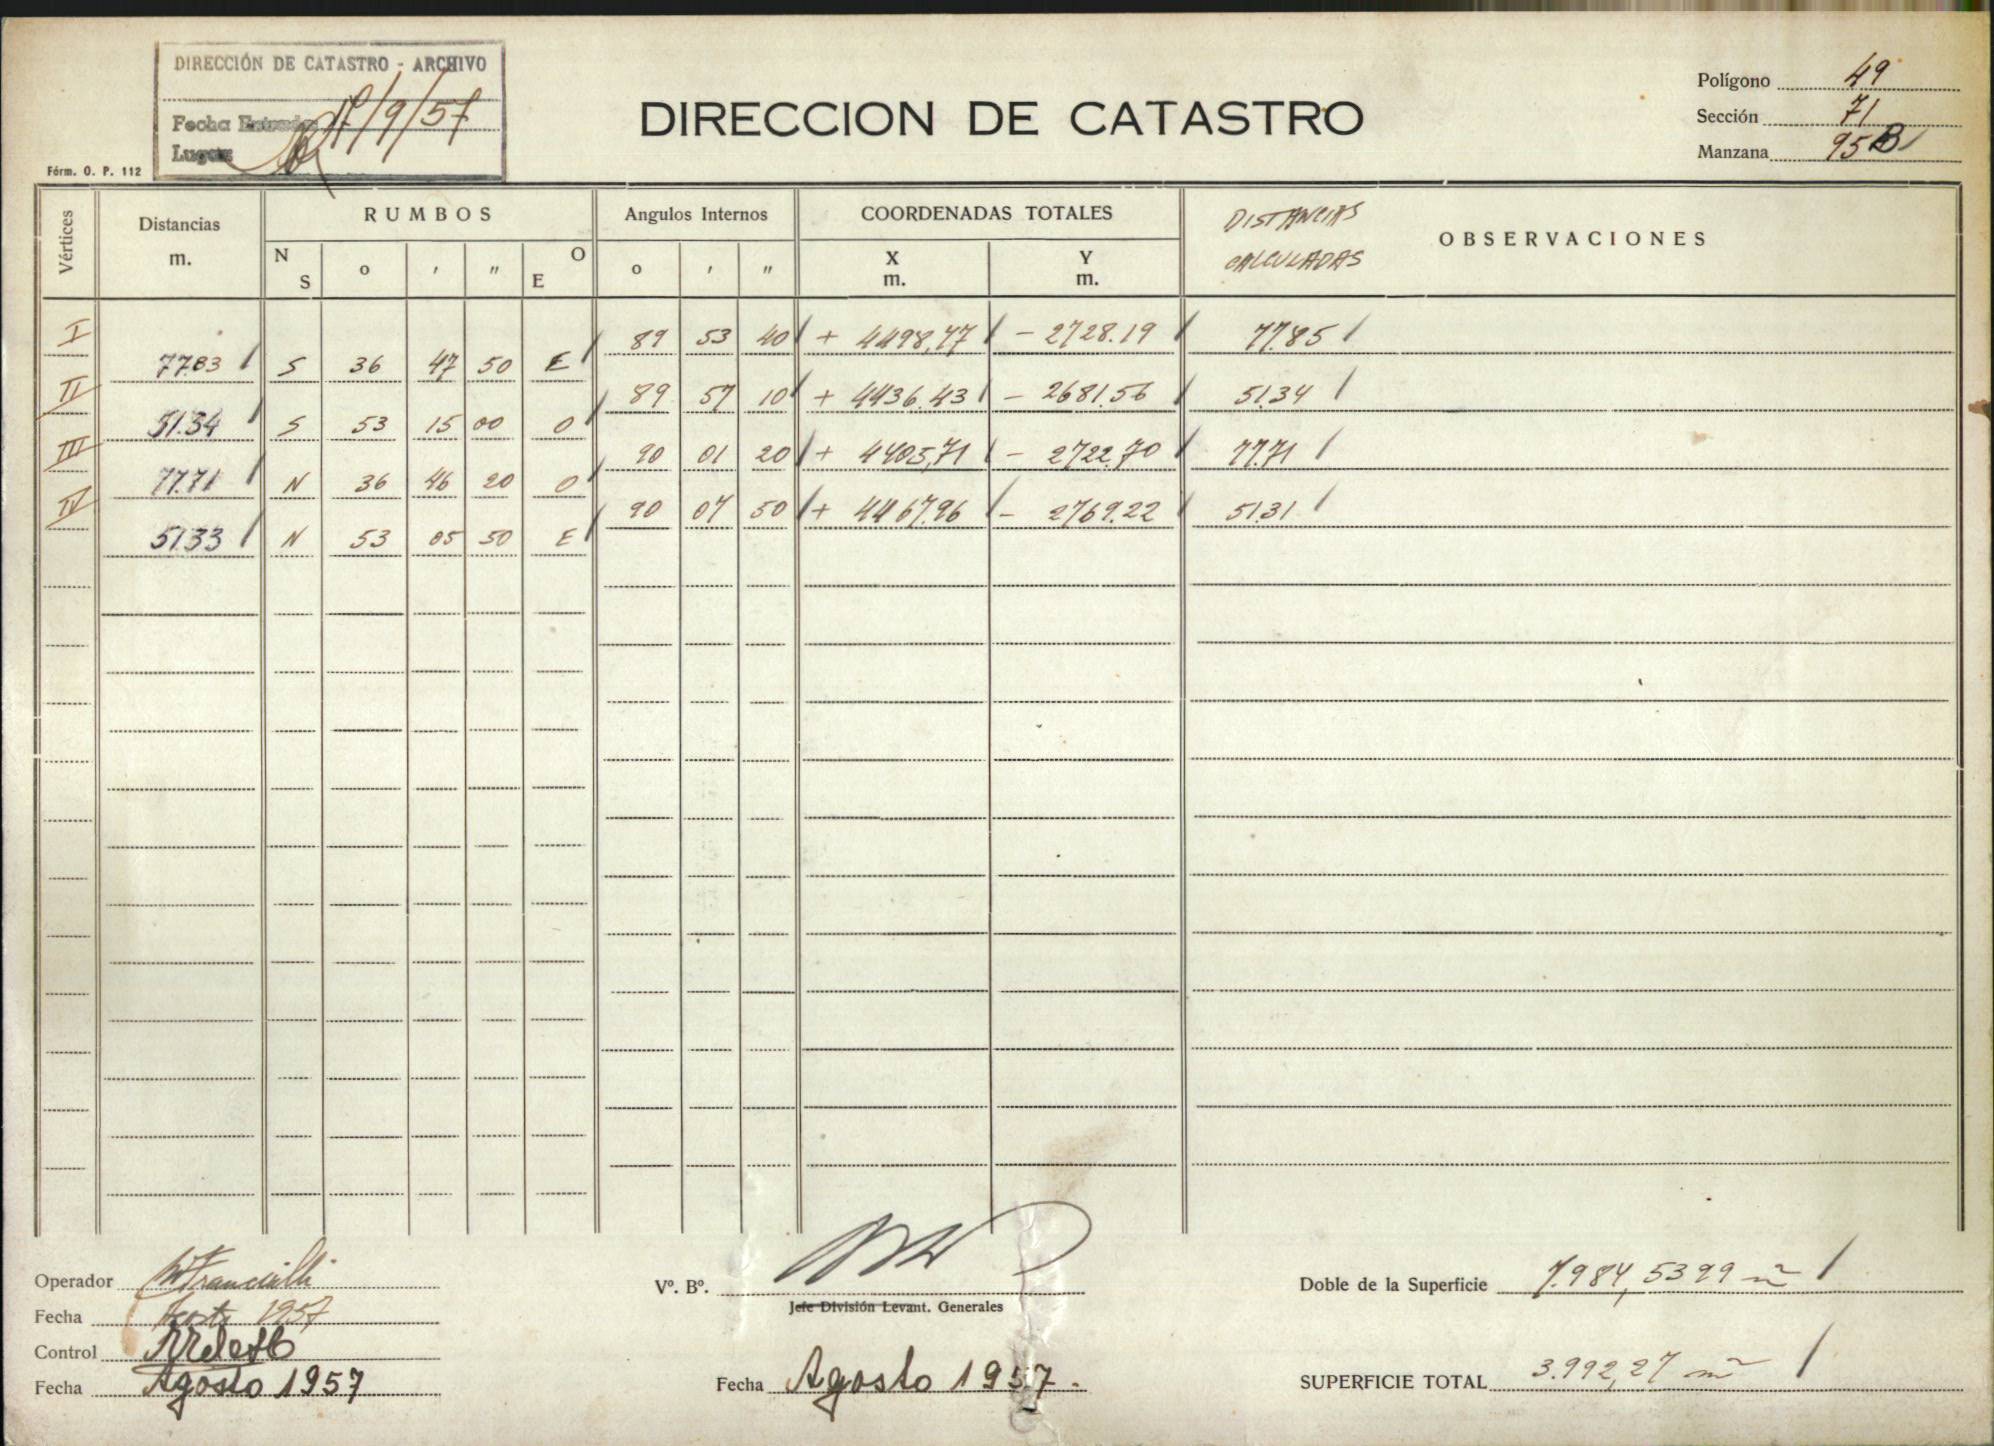 DIRECCIÓN DE CATASTRO - ARCHIVO
Fecha Entrada 1º/9/57
Lugar
Fórm. O. P. 112
DIRECCION DE CATASTRO
Polígono 49
Sección 71
Manzana 95 B
Vértices Distancias m. RUMBOS Angulos Internos COORDENADAS TOTALES DISTANCIAS CALCULADAS OBSERVACIONES
N S o ' " O E o ' " X m. Y m.
I 89 53 40 + 4498,77 - 2728.19 77.85
77.83 S 36 47 50 E
II 89 57 10 + 4436.43 - 2681.56 51.34
51.34 S 53 15 00 O
III 90 01 20 + 4405,71 - 2722.70 77.71
77.71 N 36 46 20 O
IV 90 07 50 + 4467.96 - 2769.22 51.31
51.33 N 53 05 50 E
Operador
Fecha Agosto 1957
Control
Fecha Agosto 1957
Vº. Bº.
Jefe División Levant. Generales
Fecha Agosto 1957.
Doble de la Superficie 7.984,5399 m²
SUPERFICIE TOTAL 3.992,27 m²